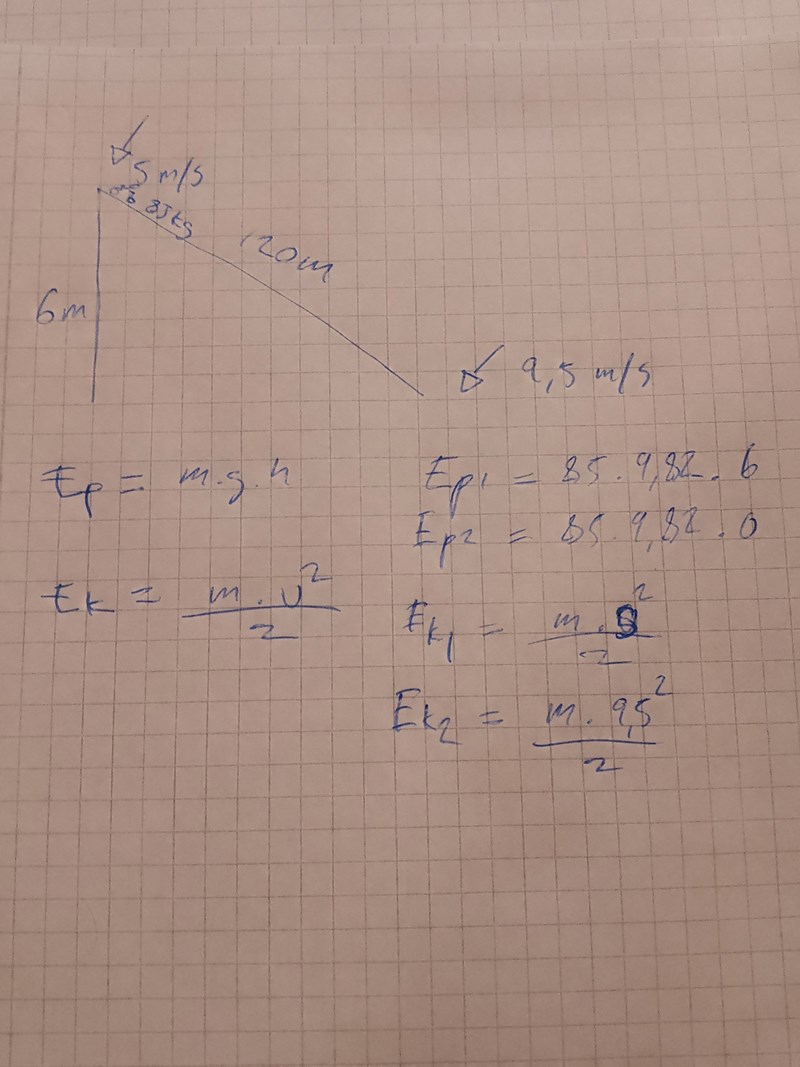 5 m/s
85kg
120m
6m
9,5 m/s
Ep = m.g.h
Ep1 = 85.9,82.6
Ep2 = 85.9,82.0
Ek = m.v²/2
Ek1 = m.5²/2
Ek2 = m.9,5²/2